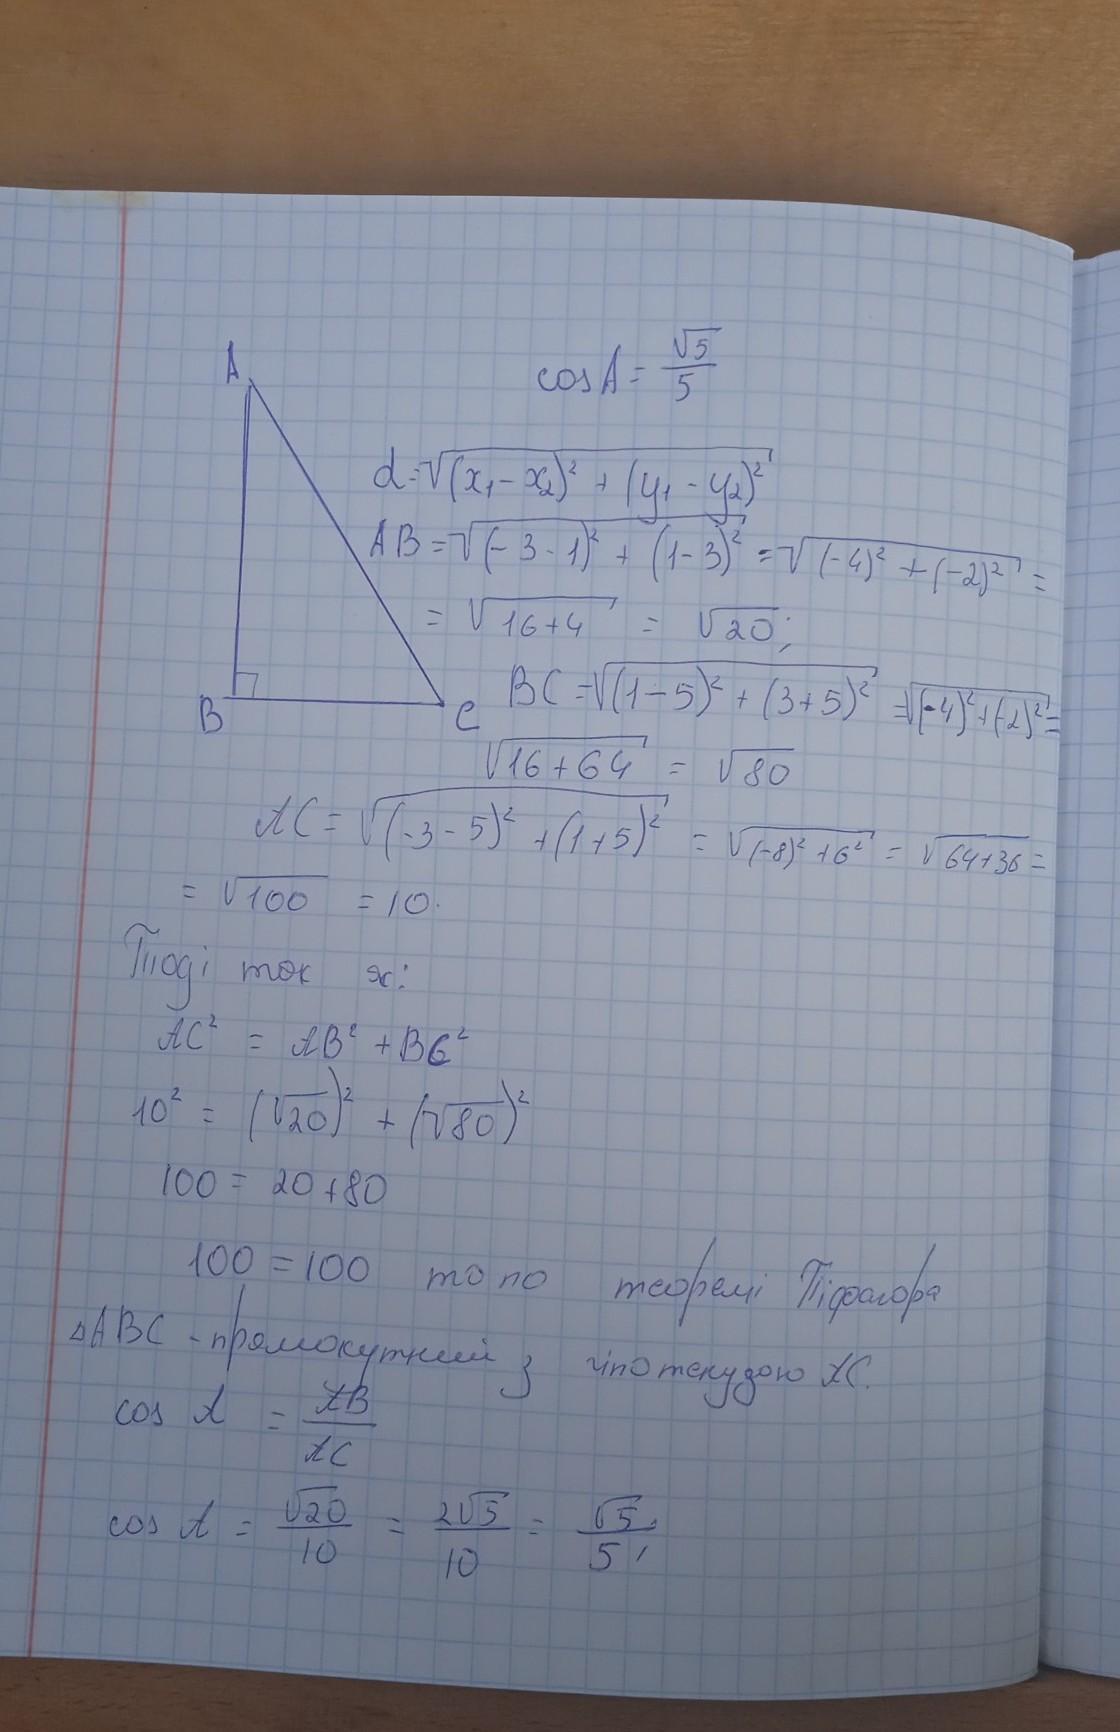 A
cos A = √5/5
d = √((x₁ - x₂)² + (y₁ - y₂)²)
AB = √((-3-1)² + (1-3)²) = √((-4)² + (-2)²) =
= √(16+4) = √20;
B
C
BC = √((1-5)² + (3+5)²) = √((-4)² + (-2)²) =
√(16+64) = √80
AC = √((-3-5)² + (1+5)²) = √((-8)² + 6²) = √(64+36) =
= √100 = 10.
Тоді так як:
AC² = AB² + BC²
10² = (√20)² + (√80)²
100 = 20+80
100 = 100 то по теоремі Піфагора
△ABC - прямокутний з гіпотенузою AC.
cos A = AB/AC
cos A = √20/10 = 2√5/10 = √5/5,